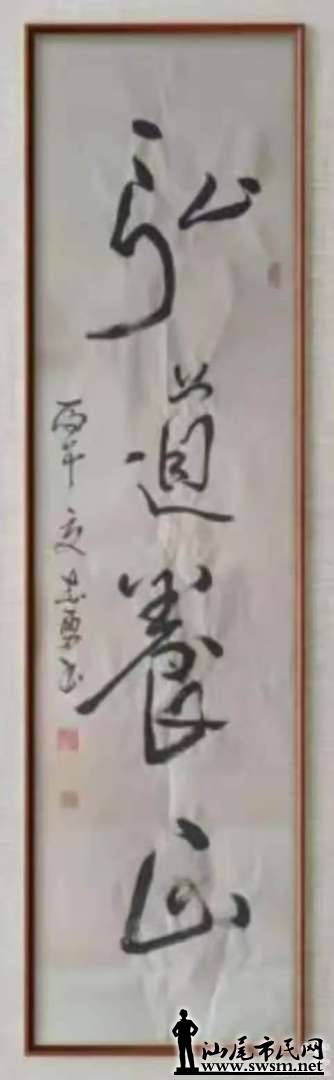 弘道養正
丙午 夏 志勇书
汕尾市民网
www.swsm.net